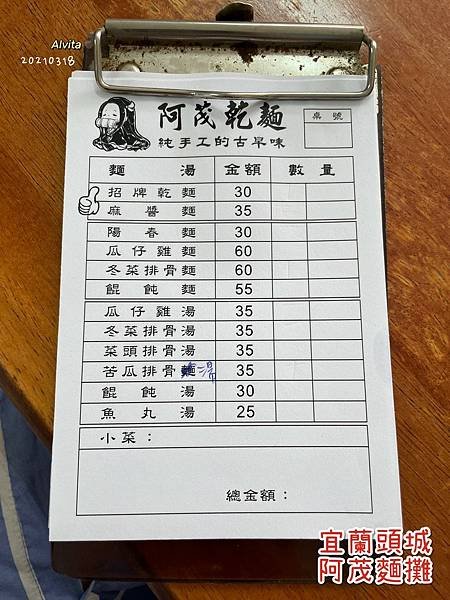 Alvita
20210318
阿茂乾麵
純手工的古早味
桌號
麵 湯 金額 數量
招牌乾麵 30
麻醬麵 35
陽春麵 30
瓜仔雞麵 60
冬菜排骨麵 60
餛飩麵 55
瓜仔雞湯 35
冬菜排骨湯 35
菜頭排骨湯 35
苦瓜排骨麵湯 35
餛飩湯 30
魚丸湯 25
小菜：
總金額：
宜蘭頭城
阿茂麵攤